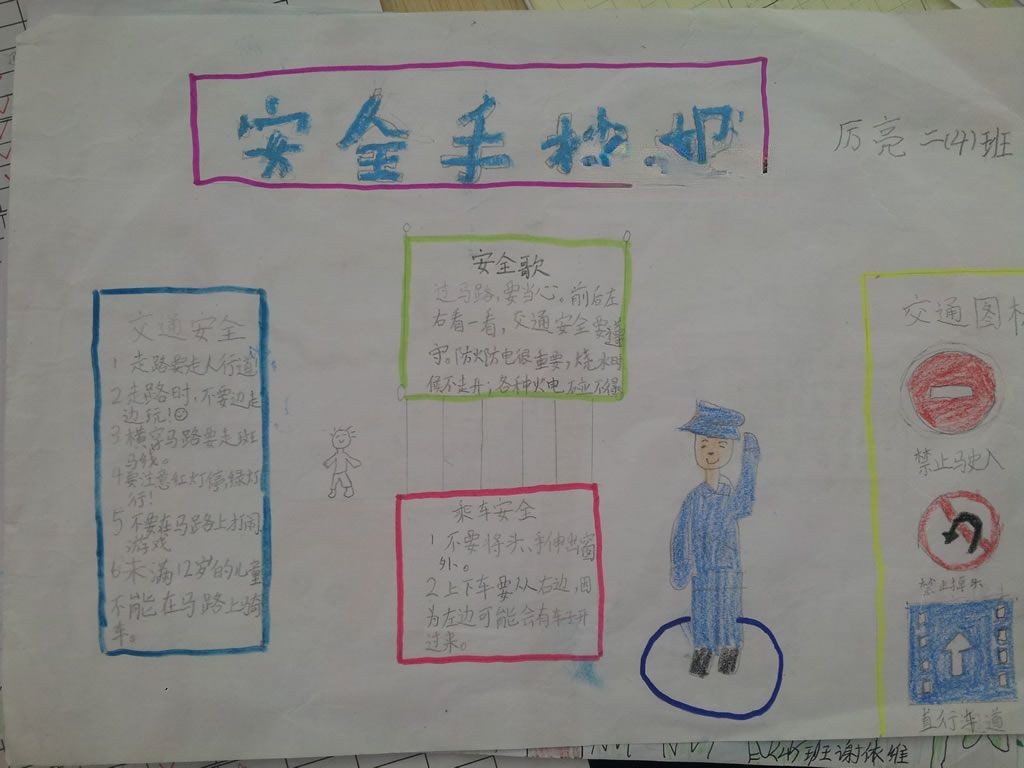 安全手抄
厉亮 二(4)班
交通安全
1 走路要走人行道
2 走路时,不要边走
边玩!
3 横穿马路要走斑
马线。
4 要注意红灯停,绿灯
行!
5 不要在马路上打闹
游戏
6 未满12岁的儿童
不能在马路上骑
车。
安全歌
过马路,要当心。前后左
右看一看,交通安全要遵
守;防火防电很重要,烧水时
候不走开;各种火电不碰
乘车安全
1 不要将头、手伸出窗
外。
2 上下车要从右边,因
为左边可能会有车子开
过来。
交通图
禁止驶入
禁止掉头
直行车道
班谢依维